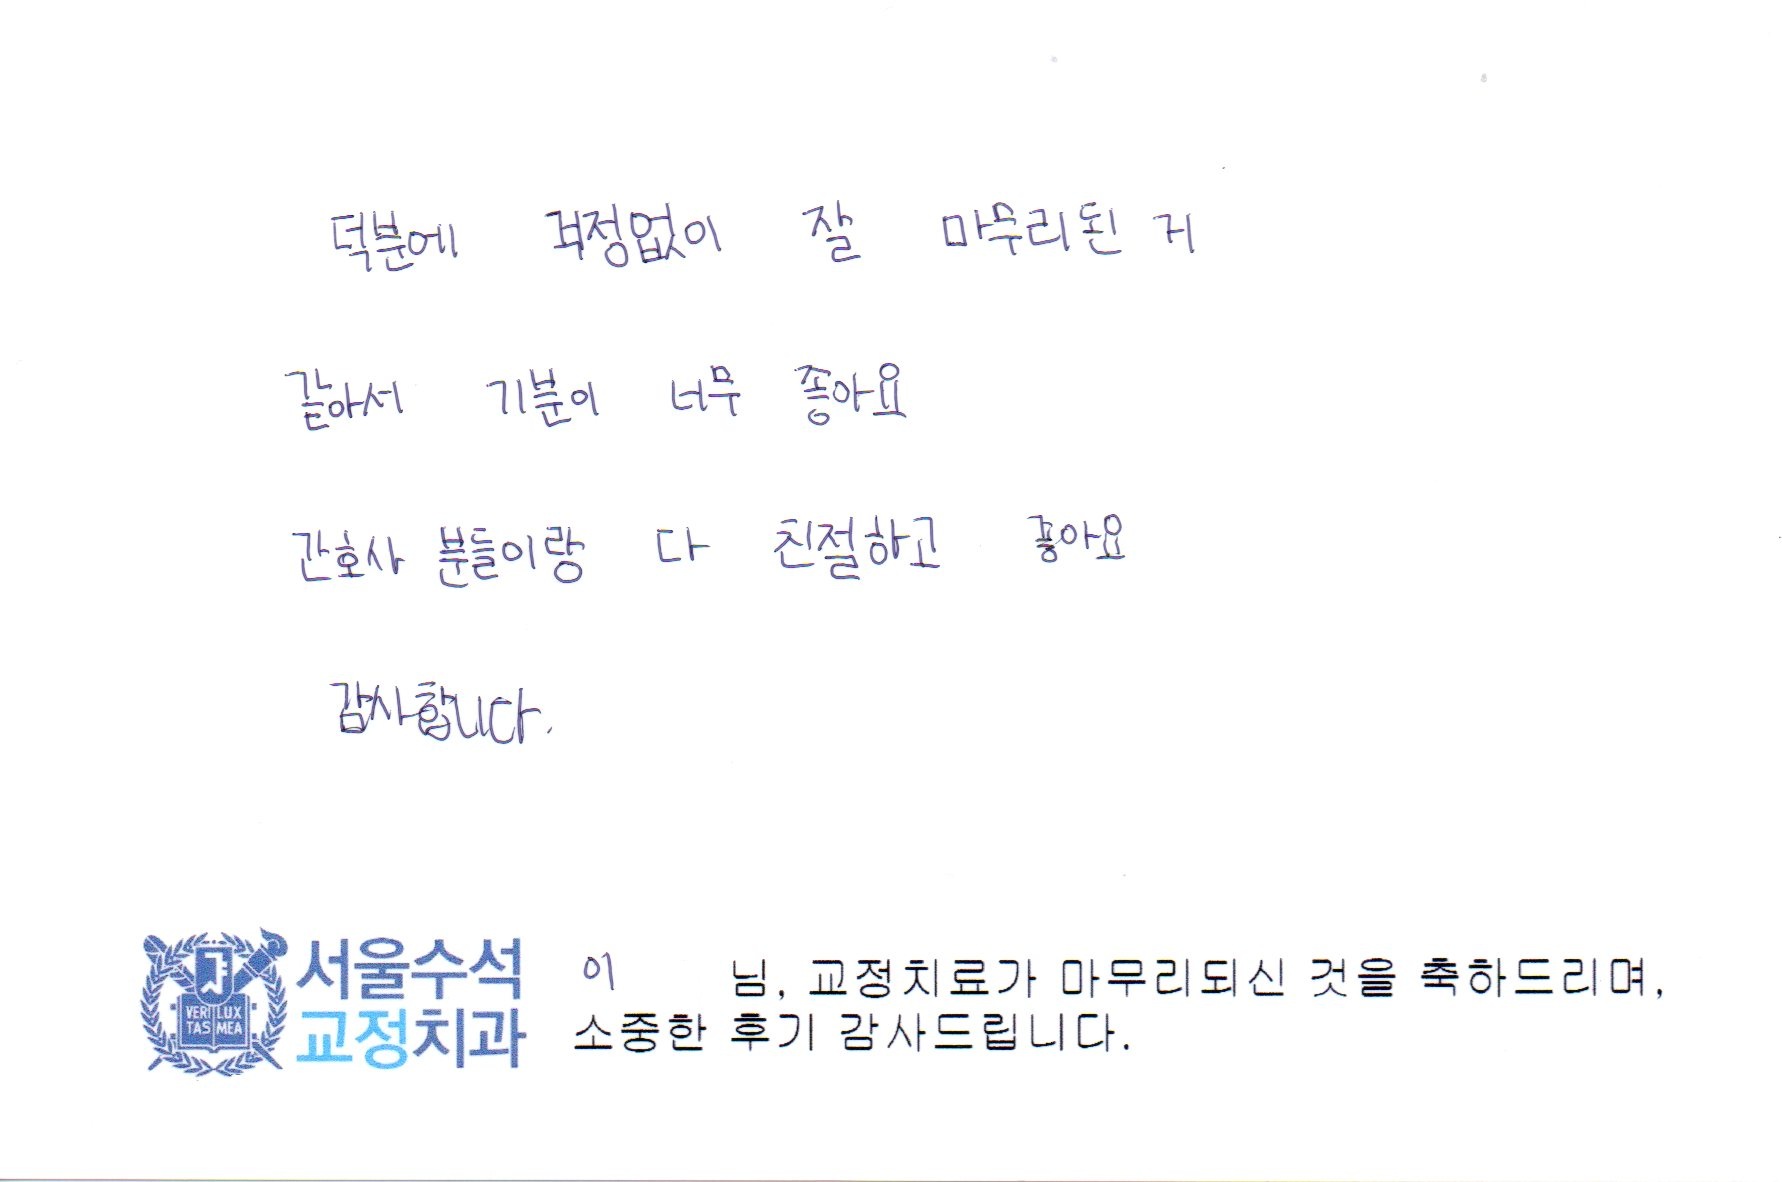 덕분에 걱정없이 잘 마무리된 거
같아서 기분이 너무 좋아요
간호사 분들이랑 다 친절하고 좋아요
감사합니다.
서울수석
교정치과
VERI LUX
TAS MEA
이 님, 교정치료가 마무리되신 것을 축하드리며,
소중한 후기 감사드립니다.